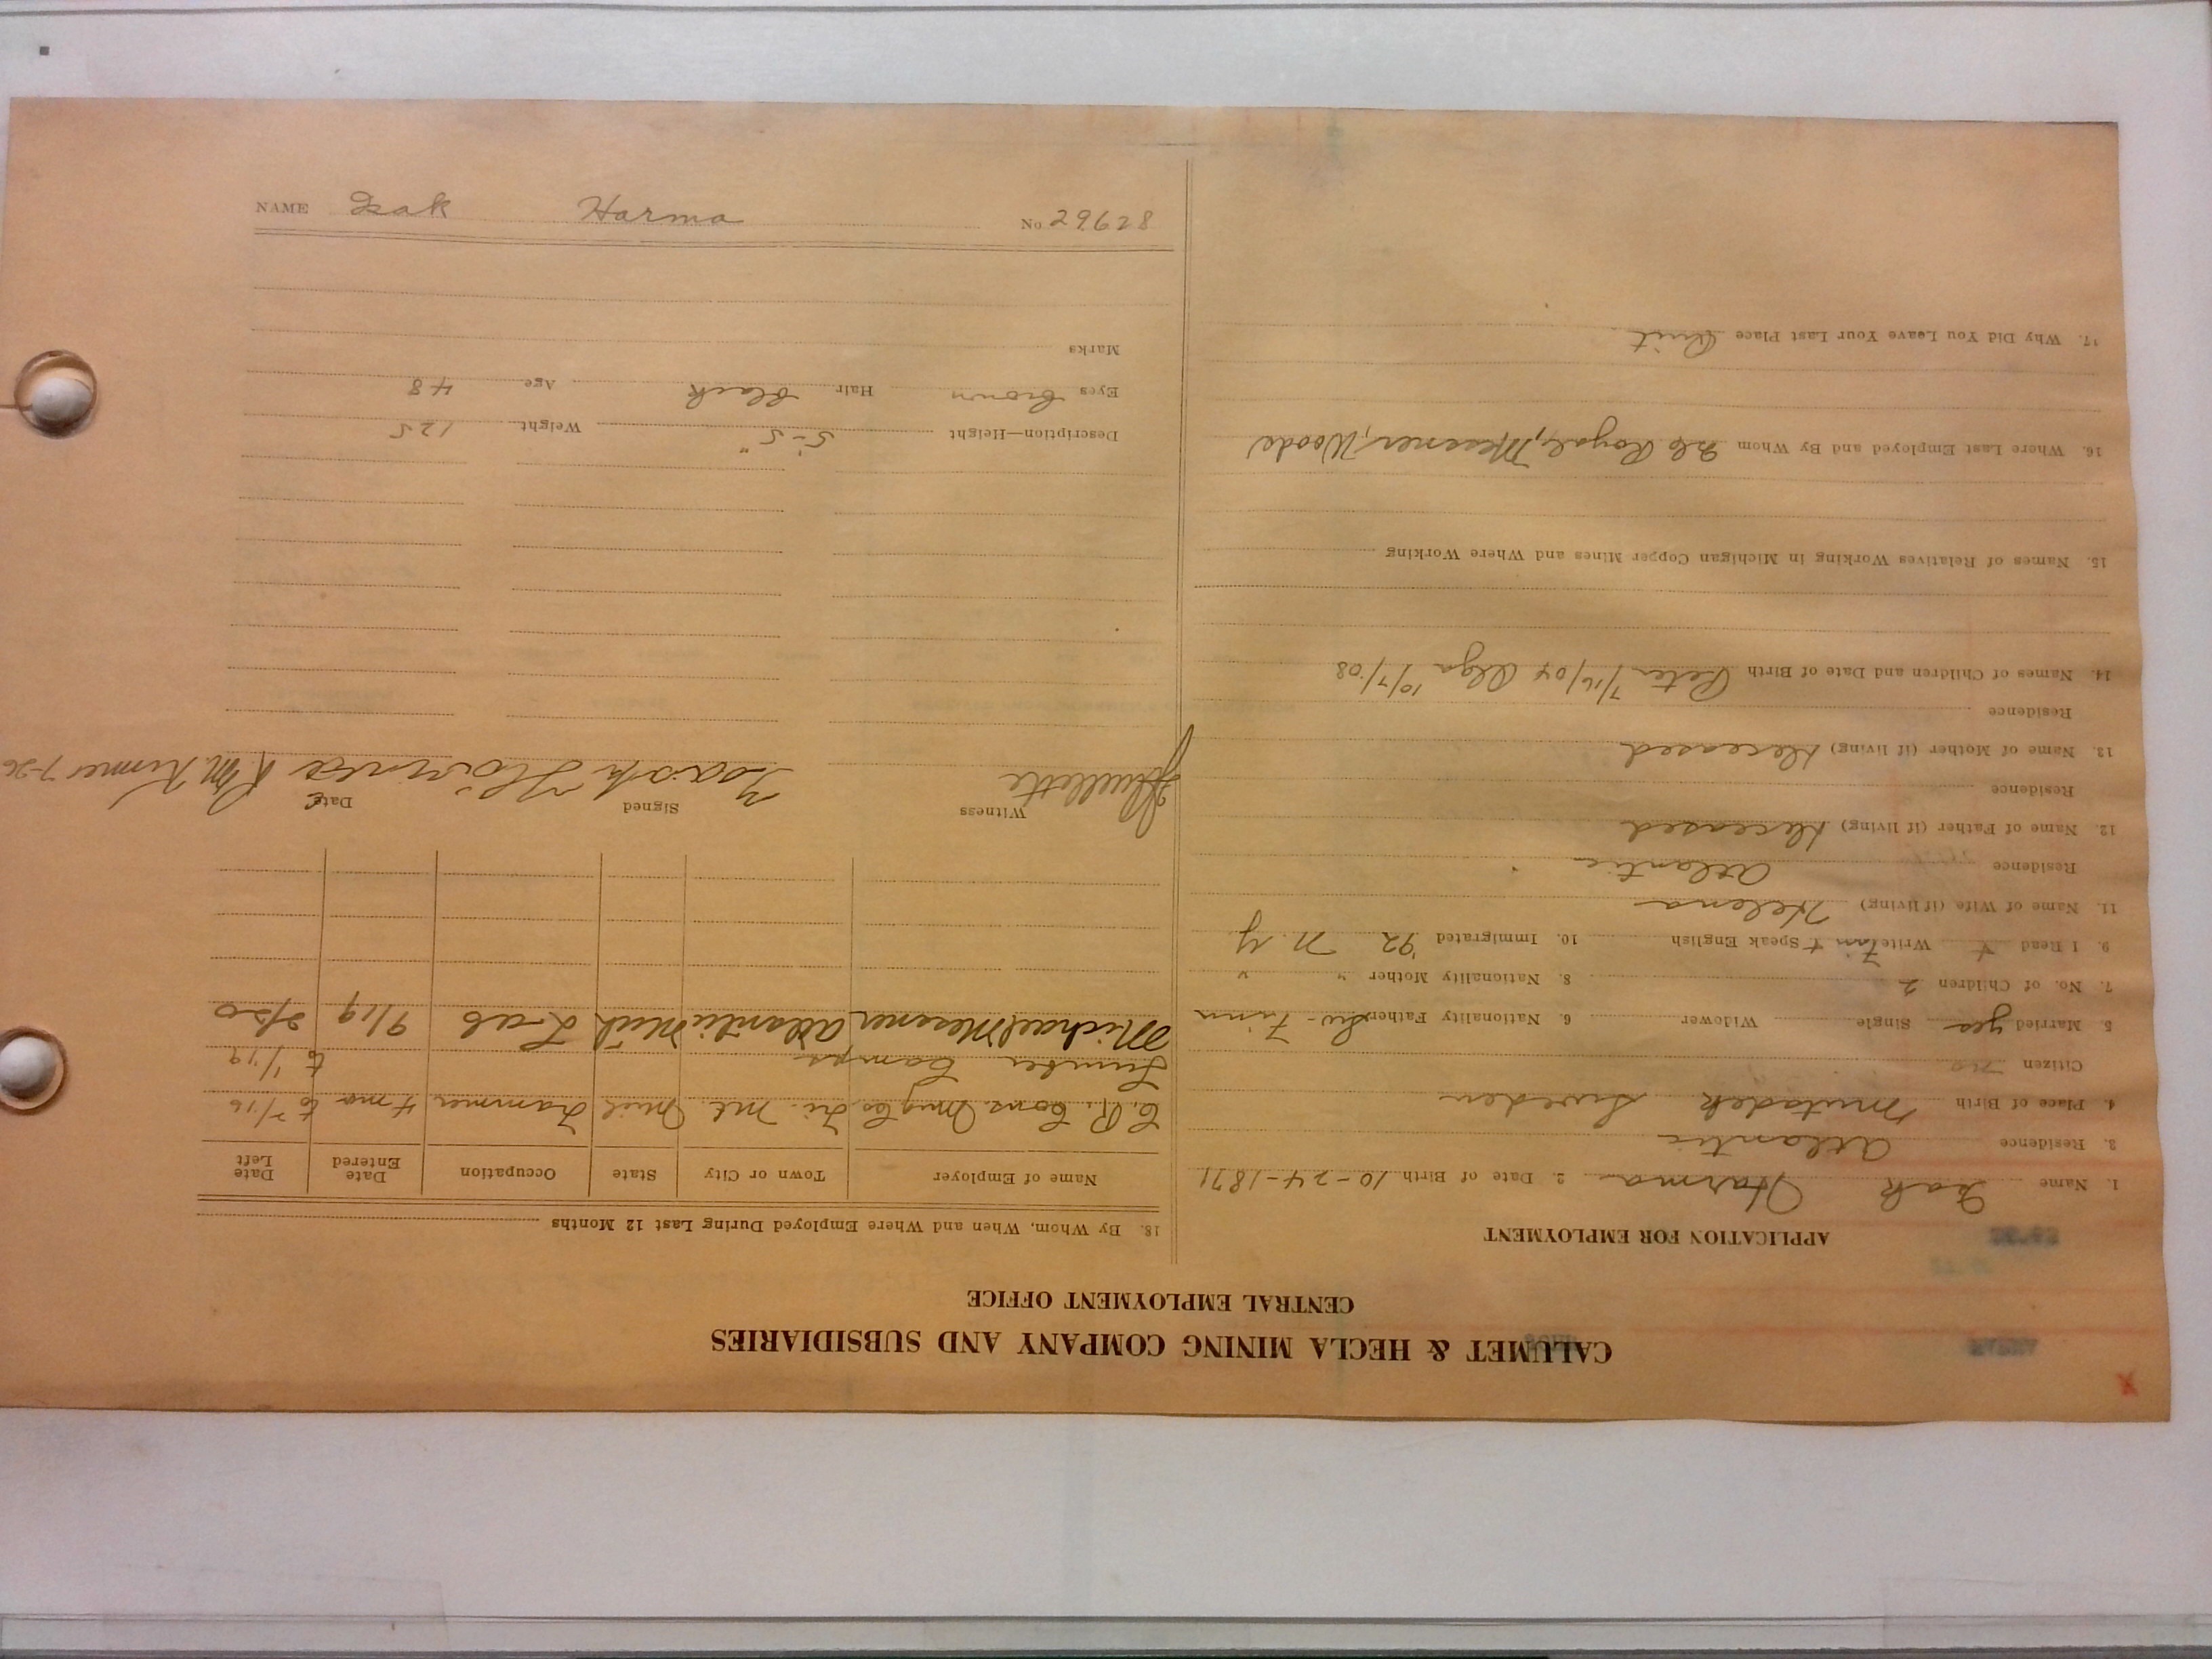 CALUMET & HECLA MINING COMPANY AND SUBSIDIARIES
CENTRAL EMPLOYMENT OFFICE
APPLICATION FOR EMPLOYMENT
1. Name Isak Harma 2. Date of Birth 10-24-1871
3. Residence Atlantic
4. Place of Birth Mutadek Sweden
Citizen no
5. Married yes Single Widower 6. Nationality Father Sw-Finn
7. No. of Children 2 8. Nationality Mother " "
9. I Read + Write Finn + Speak English 10. Immigrated '92 N.Y
11. Name of Wife (if living) Helena
Residence Atlantic
12. Name of Father (if living) Deceased
Residence
13. Name of Mother (if living) Deceased
Residence
14. Names of Children and Date of Birth Peter 7/16/04 Olga 10/7/08
15. Names of Relatives Working in Michigan Copper Mines and Where Working
16. Where Last Employed and By Whom Isle Royale, Messner, Woods
17. Why Did You Leave Your Last Place Quit
18. By Whom, When and Where Employed During Last 12 Months
Name of Employer Town or City State Occupation Date Entered Date Left
C.R. Cons. Mng Co. Tri. Mt. Mich Trammer 4 mo to 7/16
Lumber Camps to 1/19
Michael Messner Atlantic Mich Lab 9/19 2/20
Witness Signed Date
Description—Height 5'-5" Weight 125
Eyes brown Hair black Age 48
Marks
NAME Isak Harma No 29628